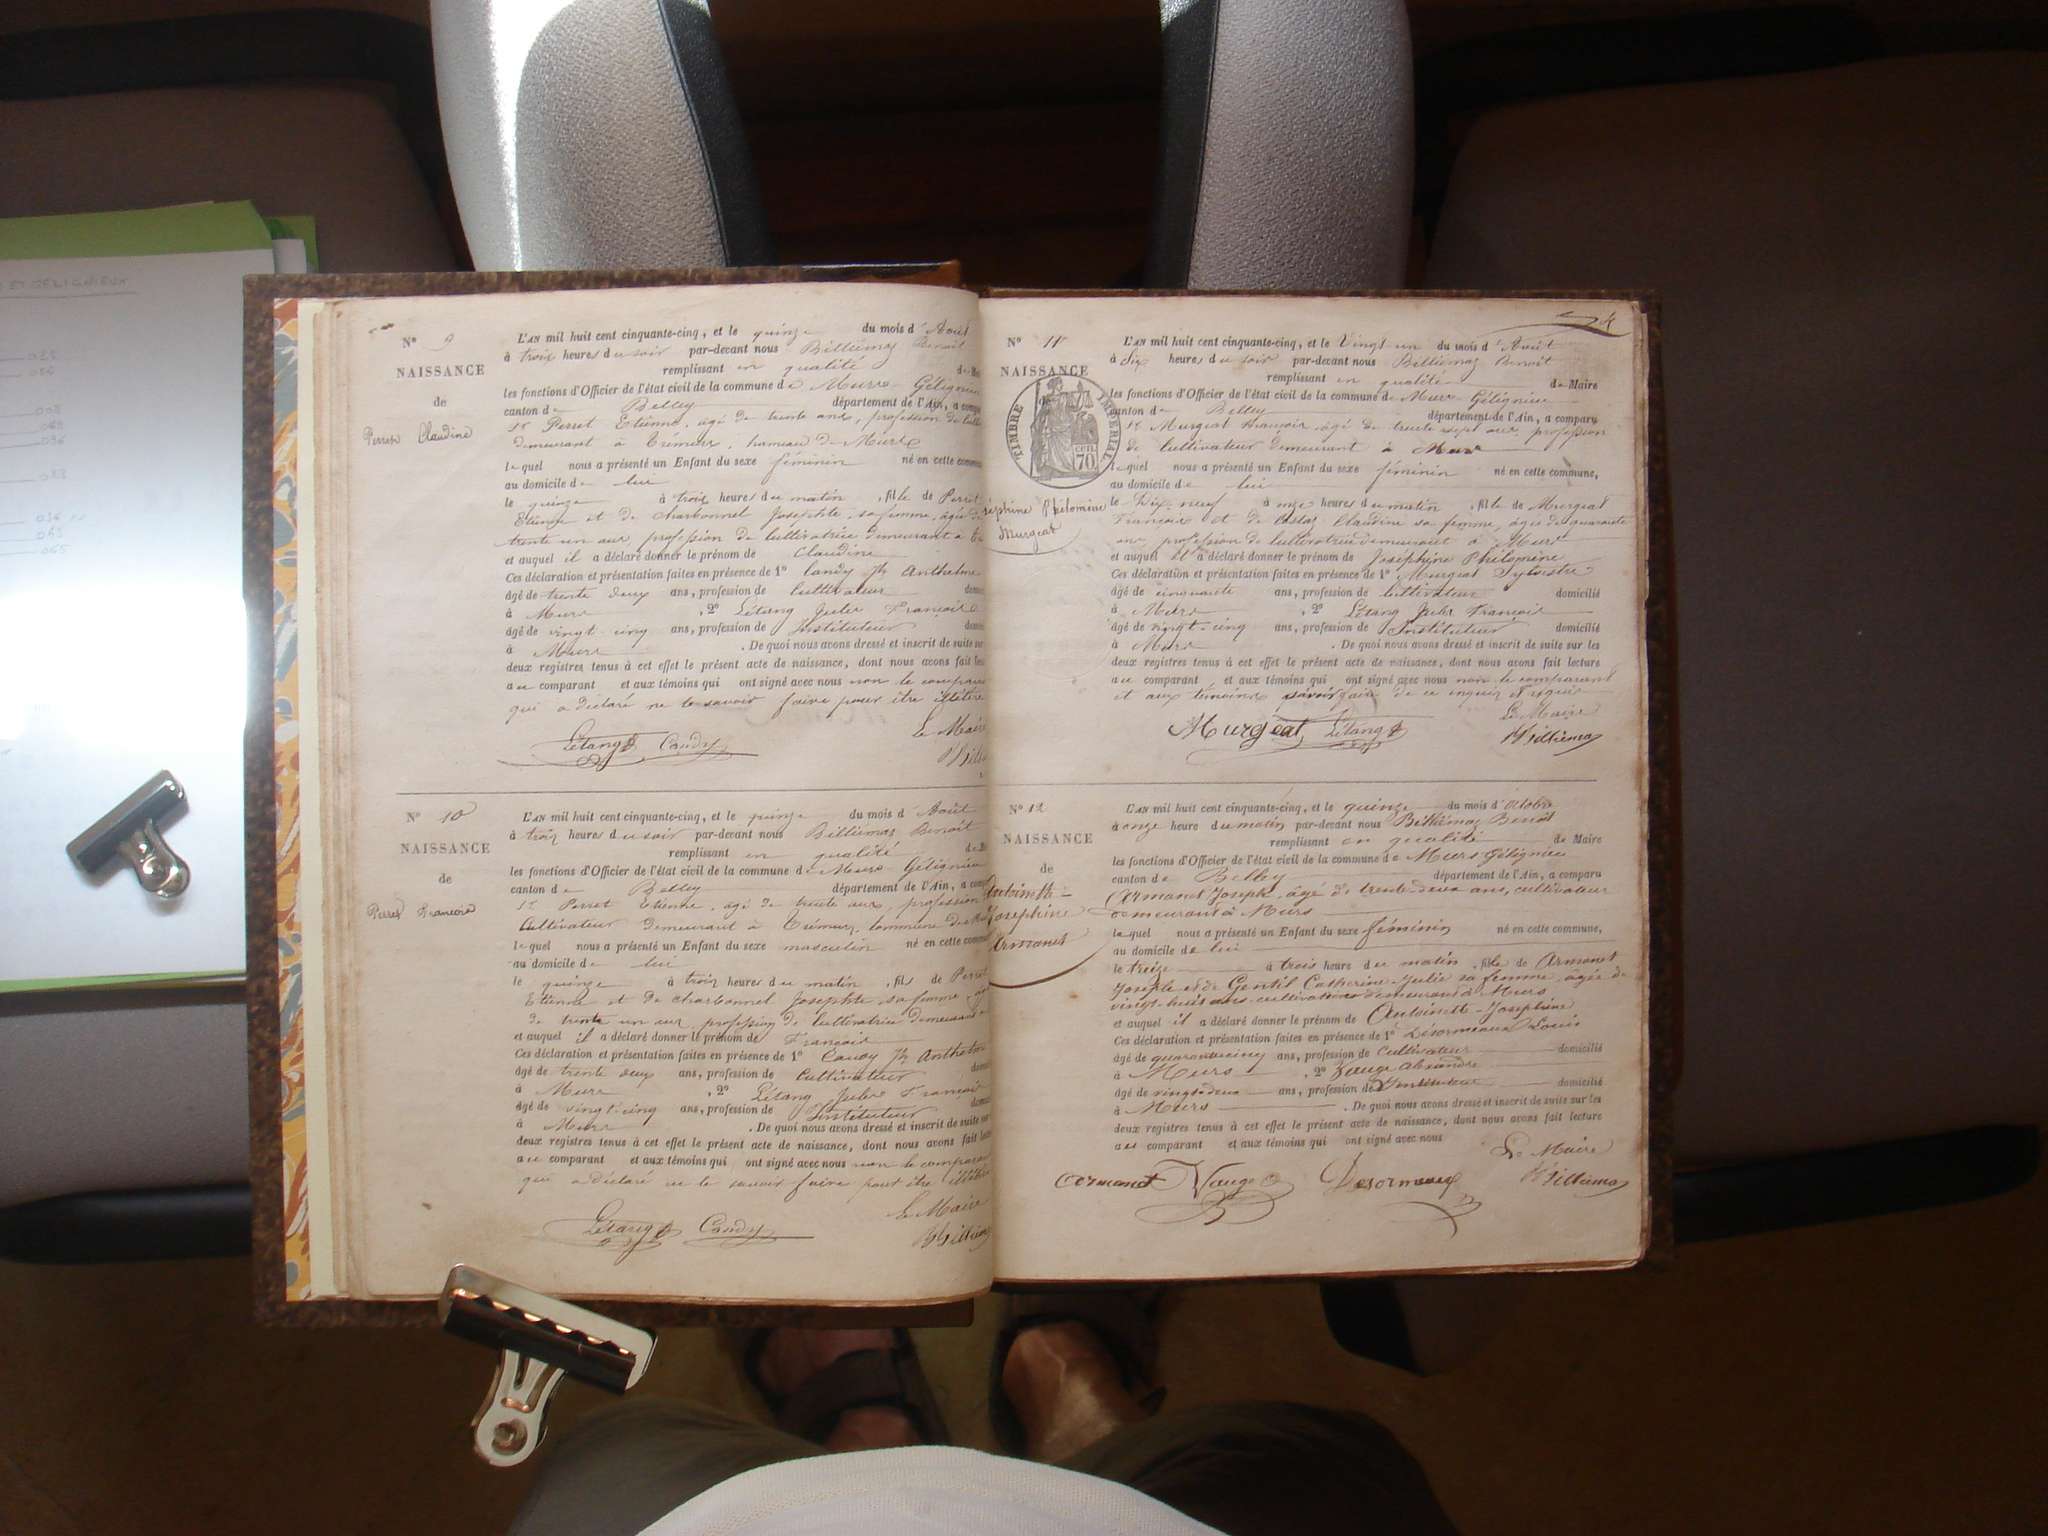 ET GÉLIGNIEUX
N° 9
NAISSANCE
de
Perret Claudine
L'AN mil huit cent cinquante-cinq, et le quinze du mois d'Août
à trois heures du soir par-devant nous Billiemaz Benoit
remplissant en qualité de
les fonctions d'Officier de l'état civil de la commune de Murs-Gélignieu
canton de Belley département de l'Ain, a comparu
Sr Perret Etienne, agé de trente ans, profession de
demeurant à Trémurs, hameau de Murs
lequel nous a présenté un Enfant du sexe féminin né en cette commune
au domicile de lui
le quinze à trois heures du matin, fille de Perret
Etienne et de Charbonnel Josephte, sa femme, agée de
trente un ans profession de cultivatrice demeurant à
et auquel il a déclaré donner le prénom de Claudine
Ces déclaration et présentation faites en présence de 1° Candy Jh Anthelme
âgé de trente deux ans, profession de cultivateur
à Murs, 2° Létang Jules François
âgé de vingt-cinq ans, profession de Instituteur
à Murs. De quoi nous avons dressé et inscrit de suite sur
deux registres tenus à cet effet le présent acte de naissance, dont nous avons fait
au comparant et aux témoins qui ont signé avec nous non le comparant
qui a déclaré ne le savoir faire pour être illétéré
Létang Candy
Le Maire
N° 10
NAISSANCE
de
Perret François
L'AN mil huit cent cinquante-cinq, et le quinze du mois d'Août
à trois heures du soir par-devant nous Billiemaz Benoit
remplissant en qualité
les fonctions d'Officier de l'état civil de la commune de Murs-Gélignieu
canton de Belley département de l'Ain, a
Sr Perret Etienne, agé de trente ans, profession
Cultivateur demeurant à Trémurs, commune de
lequel nous a présenté un Enfant du sexe masculin né en cette
au domicile de lui
le quinze à trois heures du matin, fils de Perret
Etienne et de Charbonnel Josephte, sa femme
de trente un ans profession de cultivatrice demeurant
et auquel il a déclaré donner le prénom de François
Ces déclaration et présentation faites en présence de 1° Candy Jh Anthelme
âgé de trente deux ans, profession de Cultivateur
à Murs, 2° Létang Jules François
âgé de vingt-cinq ans, profession de Instituteur
à Murs. De quoi nous avons dressé et inscrit de suite sur
deux registres tenus à cet effet le présent acte de naissance, dont nous avons fait
au comparant et aux témoins qui ont signé avec nous non le comparant
qui a déclaré ne le savoir faire pour être
Létang Candy
Le Maire
Billiemaz
4
N° 11
NAISSANCE
de
TIMBRE IMPÉRIAL
CENT. 70
Joséphine Philomine
Murgeat
L'AN mil huit cent cinquante-cinq, et le Vingt un du mois d'Août
à Six heures du soir par-devant nous Billiemaz Benoit
remplissant en qualité de Maire
les fonctions d'Officier de l'état civil de la commune de Murs-Gélignieu
canton de Belley département de l'Ain, a comparu
Sr Murgeat François agé de trente sept ans profession
de cultivateur demeurant à Murs
lequel nous a présenté un Enfant du sexe féminin né en cette commune,
au domicile de lui
le Dix-neuf à onze heures du matin, fille de Murgeat
François et de Claudine sa femme, agée de quarante
ans, profession de cultivatrice demeurant à Murs
et auquel il a déclaré donner le prénom de Joséphine Philomine
Ces déclaration et présentation faites en présence de 1° Murgeat Sylvestre
âgé de cinquante ans, profession de cultivateur domicilié
à Murs, 2° Létang Jules François
âgé de vingt-cinq ans, profession de Instituteur domicilié
à Murs. De quoi nous avons dressé et inscrit de suite sur les
deux registres tenus à cet effet le présent acte de naissance, dont nous avons fait lecture
au comparant et aux témoins qui ont signé avec nous non le comparant
et aux témoins savoir faire de ce enquis et requis
Murgeat Létang
Le Maire
Billiemaz
N° 12
NAISSANCE
de
Antoinette-
Josephine
Armanet
L'AN mil huit cent cinquante-cinq, et le quinze du mois d'octobre
à onze heure du matin par-devant nous Billiémaz Benoit
remplissant en qualité de Maire
les fonctions d'Officier de l'état civil de la commune de Murs-Gélignieu
canton de Belley département de l'Ain, a comparu
Armanet Joseph, âgé de trente-deux ans, cultivateur
demeurant à Murs
lequel nous a présenté un Enfant du sexe féminin né en cette commune,
au domicile de lui
le treize à trois heure du matin, fille de Armanet
Joseph et de Gentil Catherine-Julie sa femme âgée de
vingt-huit ans cultivatrice demeurant à Murs
et auquel il a déclaré donner le prénom de Antoinette-Josephine
Ces déclaration et présentation faites en présence de 1° Désormeaux Louis
âgé de quarante cinq ans, profession de Cultivateur domicilié
à Murs, 2° Vauge Alexandre
âgé de vingt-deux ans, profession d'Instituteur domicilié
à Murs. De quoi nous avons dressé et inscrit de suite sur les
deux registres tenus à cet effet le présent acte de naissance, dont nous avons fait lecture
au comparant et aux témoins qui ont signé avec nous
Armanet Vauge Desormeaux
Le Maire
Billiemaz